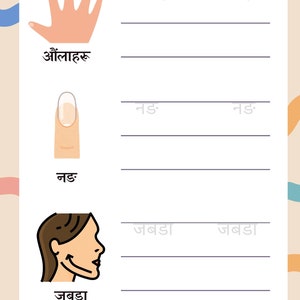 औंलाहरू
नङ नङ
नङ
जबडा जबडा
जबडा